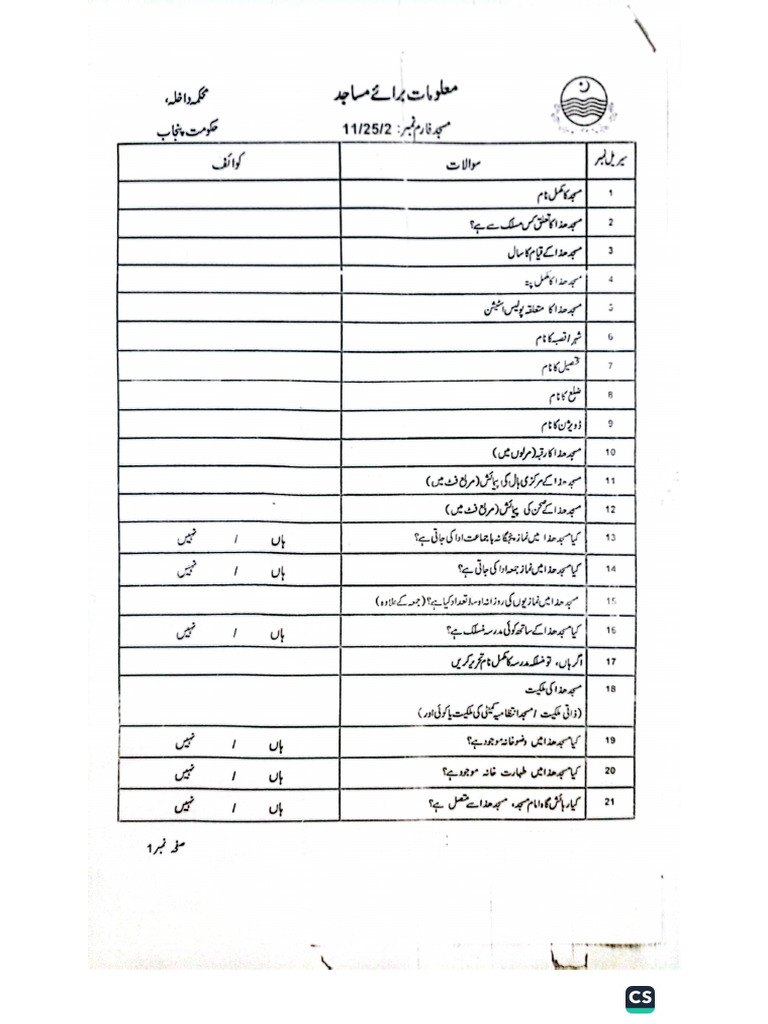 معلومات برائے مساجد
محکمہ داخلہ،
مسجد فارم نمبر: 11/25/2
حکومت پنجاب
سیریل نمبر سوالات کوائف
1 مسجد کا مکمل نام
2 مسجد ھذا کا تعلق کس مسلک سے ہے؟
3 مسجد ھذا کے قیام کا سال
4 مسجد ھذا کا مکمل پتہ
5 مسجد ھذا کا متعلقہ پولیس اسٹیشن
6 شہر / قصبہ کا نام
7 تحصیل کا نام
8 ضلع کا نام
9 ڈویژن کا نام
10 مسجد ھذا کا رقبہ (مرلوں میں)
11 مسجد ھذا کے مرکزی ہال کی پیمائش (مربع فٹ میں)
12 مسجد ھذا کے صحن کی پیمائش (مربع فٹ میں)
13 کیا مسجد ھذا میں نماز پنجگانہ باجماعت ادا کی جاتی ہے؟ ہاں / نہیں
14 کیا مسجد ھذا میں نماز جمعہ ادا کی جاتی ہے؟ ہاں / نہیں
15 مسجد ھذا میں نمازیوں کی روزانہ اوسط تعداد کیا ہے؟ (جمعہ کے علاوہ)
16 کیا مسجد ھذا کے ساتھ کوئی مدرسہ منسلک ہے؟ ہاں / نہیں
17 اگر ہاں، تو منسلکہ مدرسہ کا مکمل نام تحریر کریں
18 مسجد ھذا کی ملکیت
(ذاتی ملکیت / مسجد انتظامیہ کمیٹی کی ملکیت یا کوئی اور)
19 کیا مسجد ھذا میں وضو خانہ موجود ہے؟ ہاں / نہیں
20 کیا مسجد ھذا میں طہارت خانہ موجود ہے؟ ہاں / نہیں
21 کیا رہائش گاہ امام مسجد، مسجد ھذا سے متصل ہے؟ ہاں / نہیں
صفحہ نمبر 1
CS